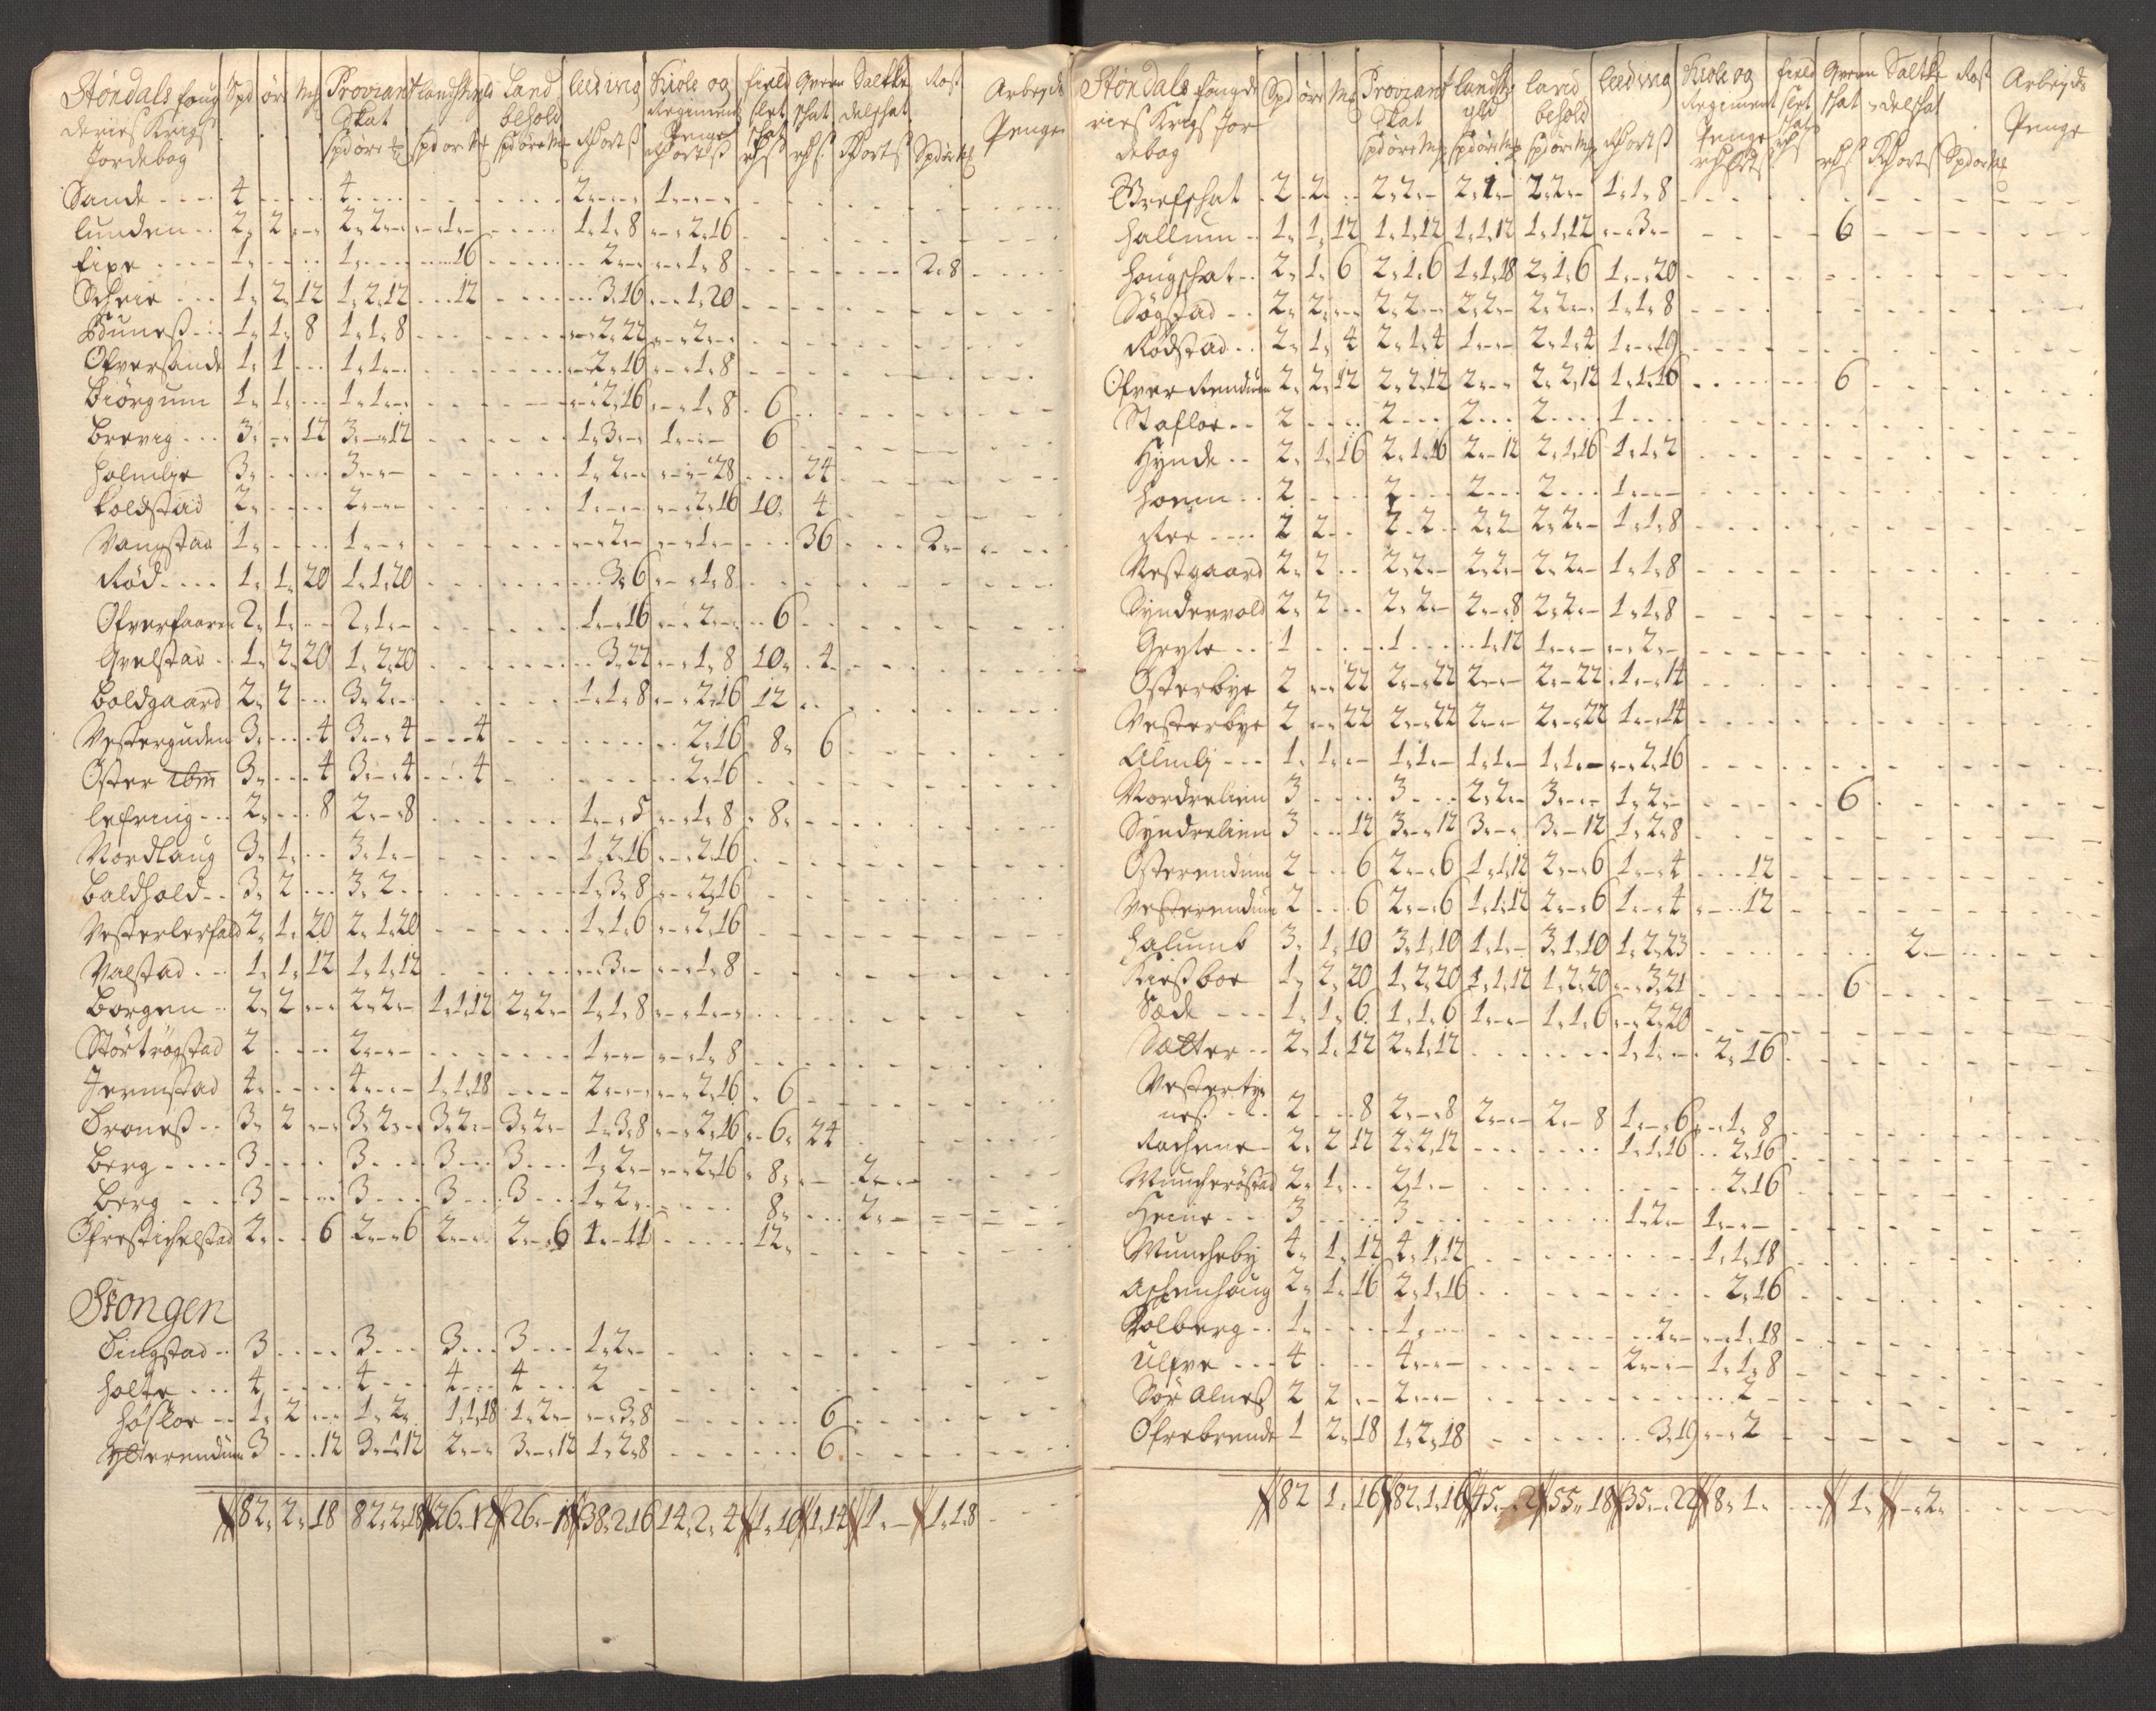 Støndals foug Spd øre Mk Proviant Landskyld Land leeding Skole og field Qvern Saltke Rost Arbeyds
deries Krigs Skat behold Regiment slet skat delskat Penge
Jordebog Spd øre Spd ør M Spd øre M Rd ort ß Penge Rd ort ß skat Rd ß Rd ß Rd ort ß Spd ør M
Sande 4 4 2 1
lunden 2 2 2 2 1 1 1 8 2 16
fixe 1 1 16 2 1 8 2 8
Schrie 1 2 12 1 2 12 12 3 16 1 20
Buneß 1 1 8 1 1 8 2 22 2
Ofversande 1 1 1 1 2 16 1 8
Biörgum 1 1 1 1 2 16 1 8 6
brevig 3 12 3 12 1 3 1 6
holmlije 3 3 1 2 28 24
koldstad 2 2 1 2 16 10 4
Vangstad 1 1 2 1 36 2
Rød 1 1 20 1 1 20 3 6 1 8
Ofverfaaren 2 1 2 1 1 16 2 6
Gvelstad 1 2 20 1 2 20 3 22 1 8 10 4
boldgaard 2 2 3 2 1 1 8 2 16 12
Vesterguden 3 4 3 4 4 2 16 8 6
Öster ibm 3 4 3 4 4 2 16
lefring 2 8 2 8 1 5 1 8 8
Nordlaug 3 1 3 1 1 2 16 2 16
baldhold 3 2 3 2 1 3 8 2 16
Vesterlerfald 2 1 20 2 1 20 1 1 6 2 16
Valstad 1 1 12 1 1 12 3 1 8
borgen 2 2 2 2 1 1 12 2 2 1 1 8 1
Störtrögstad 2 2 1 1 8
Jermstad 4 4 1 1 18 2 2 16 6
broneß 3 2 3 2 3 2 3 2 1 3 8 2 16 6 24
berg 3 3 3 3 1 2 2 16 8 2
berg 3 3 3 3 1 2 8 2
Ofrestichelstad 2 6 2 6 2 2 6 1 11 12
Stongen
Bingstad 3 3 3 3 1 2
holte 4 4 4 4 2
höskoe 1 2 1 2 1 1 18 1 2 3 8 6
Ytterendum 3 12 3 12 2 3 12 1 2 8 6
82 2 18 82 2 18 26 12 26 18 38 2 16 14 2 4 1 10 1 14 1 1 1 8
Støndals fougde Spd øre Mk Proviant landsk land leeding Skole og field Qvern Saltke Rost Arbeyds
ries Krigs Jor Skat yld behold Regiment slet skat delskat Penge
debog Spd øre M Spd øre M Spd øre M Rd ort ß Penge skat Rd ß Rd ort ß Spd ør M
Brefskat 2 2 2 2 2 1 2 2 1 1 8
hallum 1 1 12 1 1 12 1 1 12 1 1 12 3 6
hougskat 2 1 6 2 1 6 1 1 18 2 1 6 1 20
Søgstad 2 2 2 2 2 2 2 2 1 1 8
Rødstad 2 1 4 2 1 4 1 2 1 4 1 19
Ofver Rendum 2 2 12 2 2 12 2 2 2 12 1 1 16 6
Stafloe 2 2 2 2 1
Hynde 2 1 16 2 1 16 2 12 2 1 16 1 1 2
hoem 2 2 2 2 1
Ree 2 2 2 2 2 2 2 2 1 1 8
Vestgaard 2 2 2 2 2 2 2 2 1 1 8
Syndervold 2 2 2 2 2 8 2 2 1 1 8
Gryte 1 1 1 12 1 2
Österbye 2 22 2 22 2 2 22 1 14
Vesterbye 2 22 2 22 2 2 22 1 14
Almlj 1 1 1 1 1 1 1 1 2 16
Nordrelien 3 3 2 2 3 1 2 6
Syndrelien 3 12 3 12 3 3 12 1 2 8
Österendum 2 6 2 6 1 1 12 2 6 1 4 12
Vesterendum 2 6 2 6 1 1 12 2 6 1 4 12
halumb 3 1 10 3 1 10 1 1 3 1 10 1 2 23 2
Kirßboe 1 2 20 1 2 20 1 1 12 1 2 20 3 21 6
Sæde 1 1 6 1 1 6 1 1 1 6 2 20
Sætter 2 1 12 2 1 12 1 1 2 16
Vestertye
neß 2 8 2 8 2 2 8 1 6 1 8
Rachne 2 2 12 2 2 12 1 1 16 2 16
Muncherøstad 2 1 2 1 2 16
Heine 3 3 1 2 1
Muncheby 4 1 12 4 1 12 1 1 18
Aschenhoug 2 1 16 2 1 16 2 16
Kolberg 1 1 2 1 18
Ulfve 4 4 2 1 1 8
Sör Alnes 2 2 2 2
Ofrebrende 1 2 18 1 2 18 3 19 2
82 1 16 82 1 16 45 2 55 18 35 22 8 1 1 2